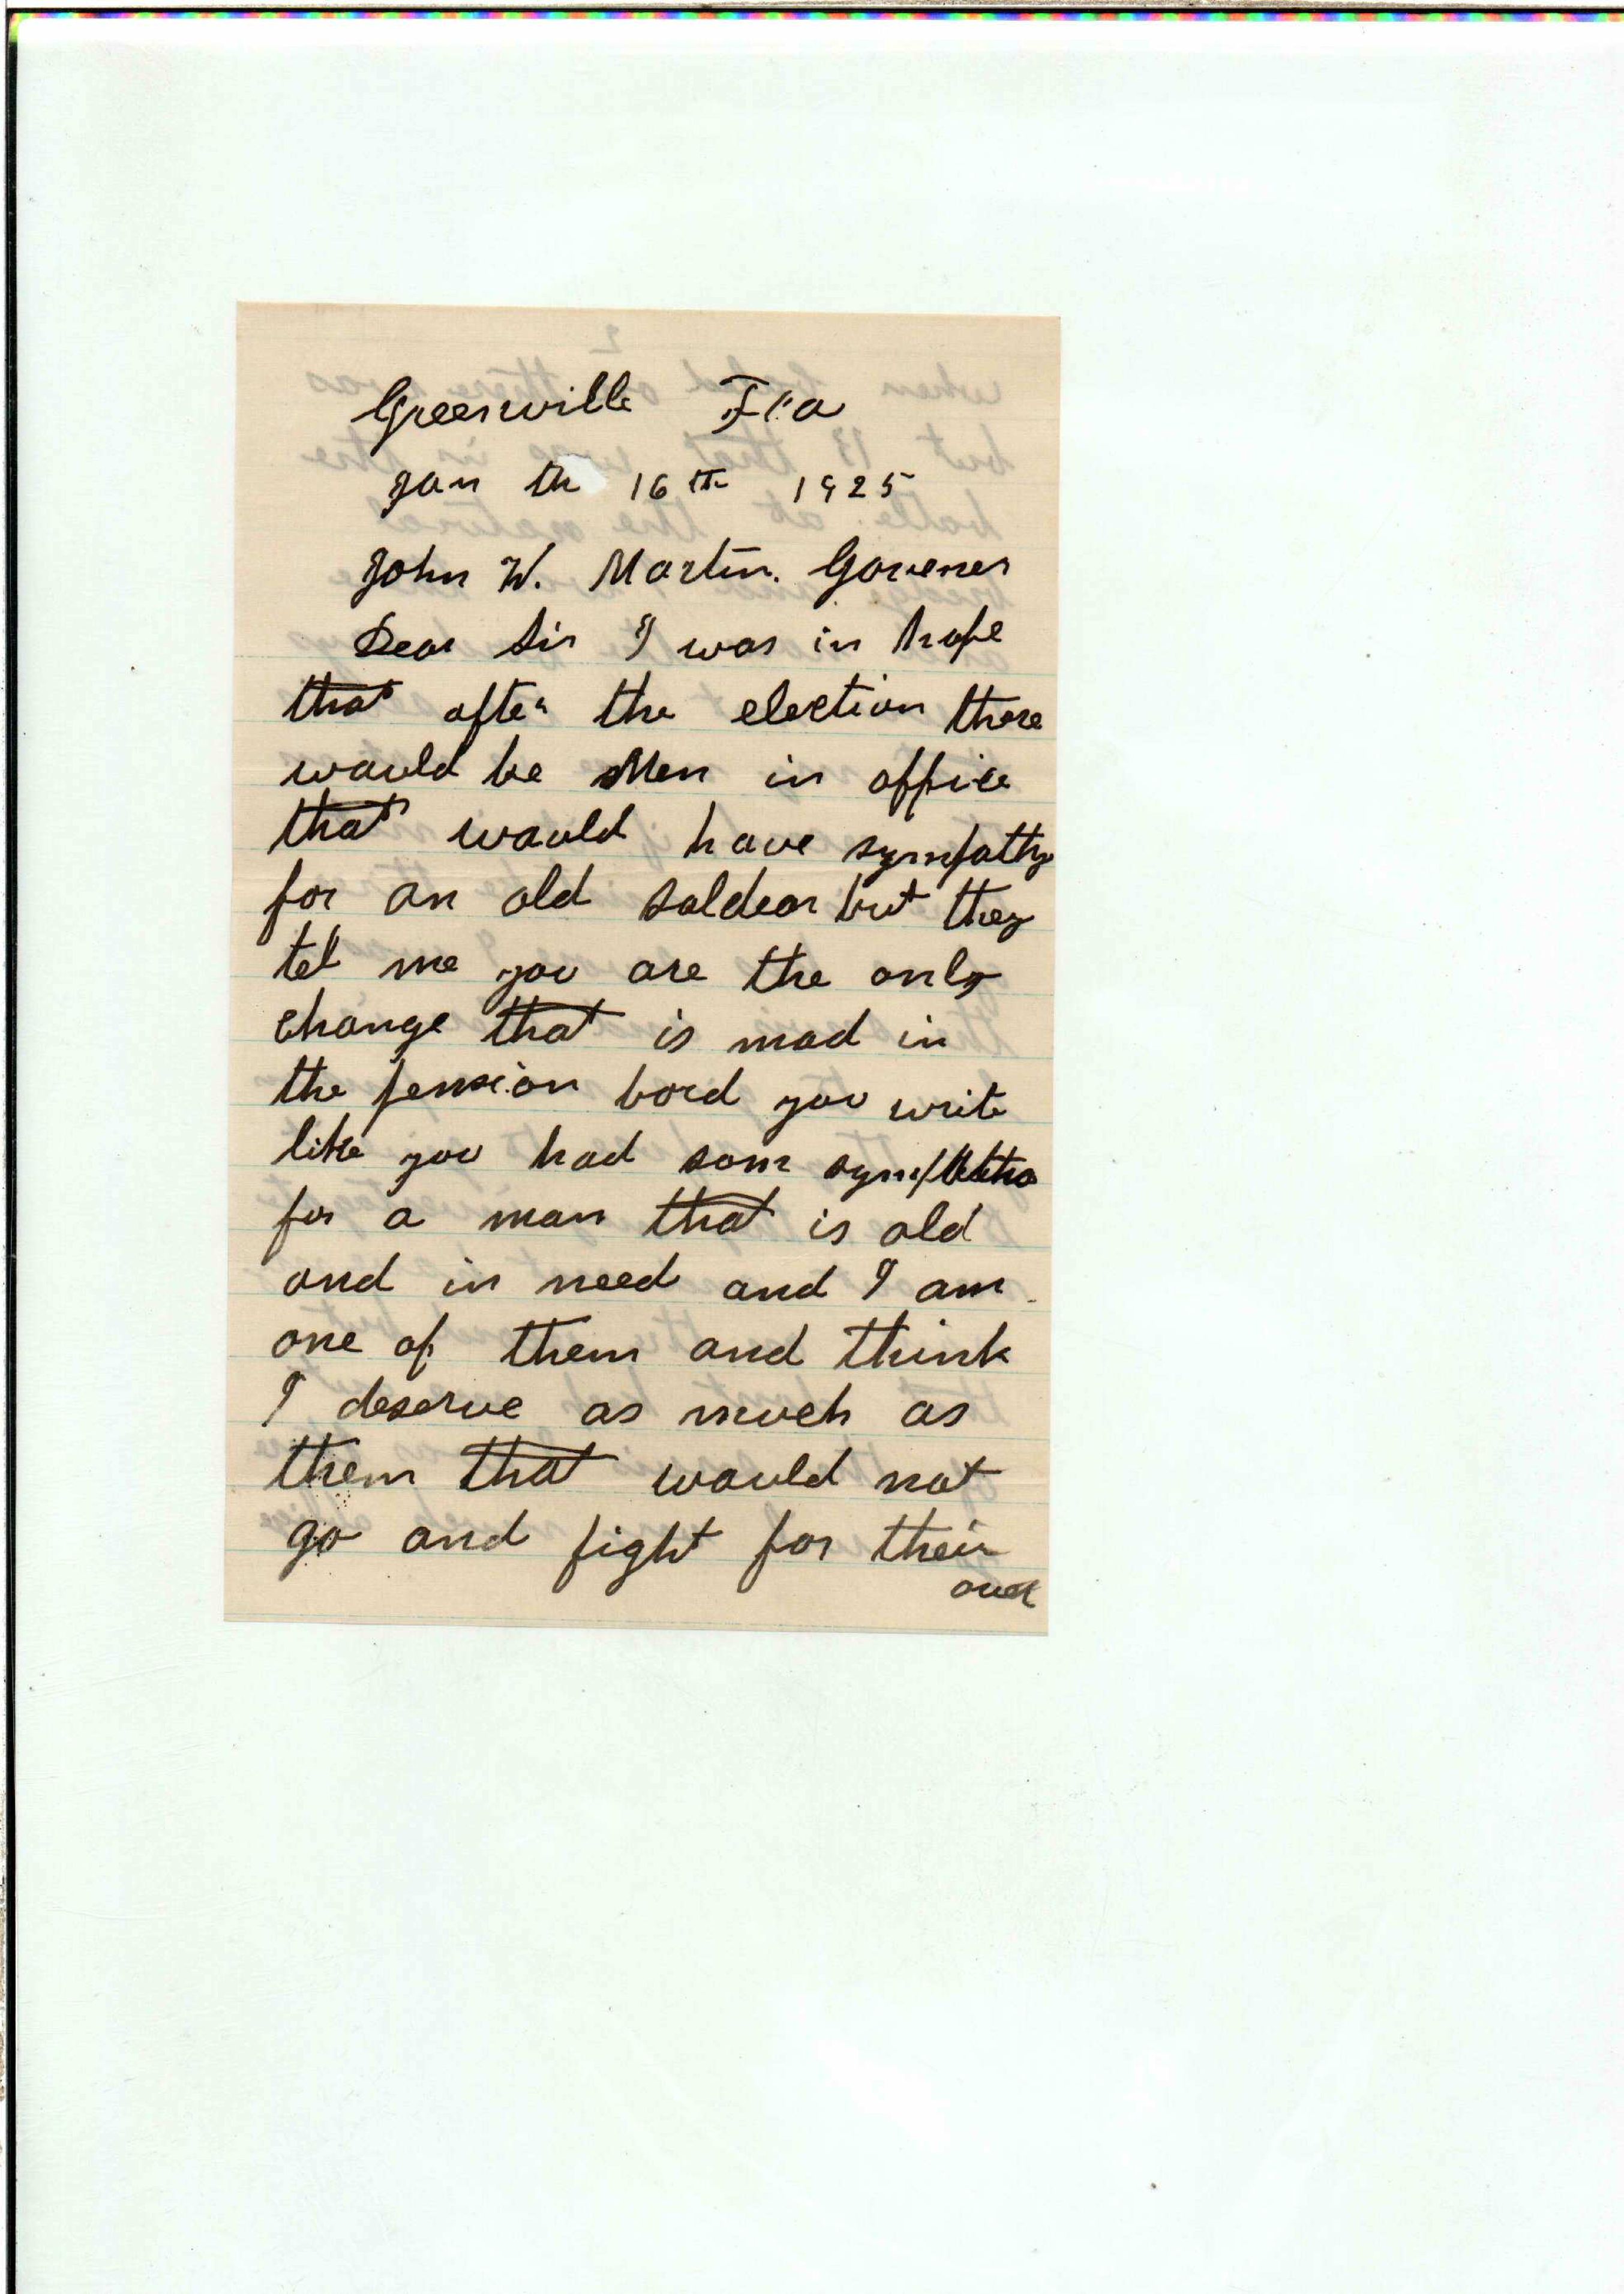 Greenville Fla
Jan th 16th 1925
John W. Martin. Governer
Dear Sir I was in hope
that after the election there
would be Men in office
that would have sympathy
for an old soldear but they
tel me you are the only
change that is mad in
the pension bord you write
like you had som
for a man that is old
and in need and I am
one of them and think
I deserve as much as
them that would not
go and fight for their
over